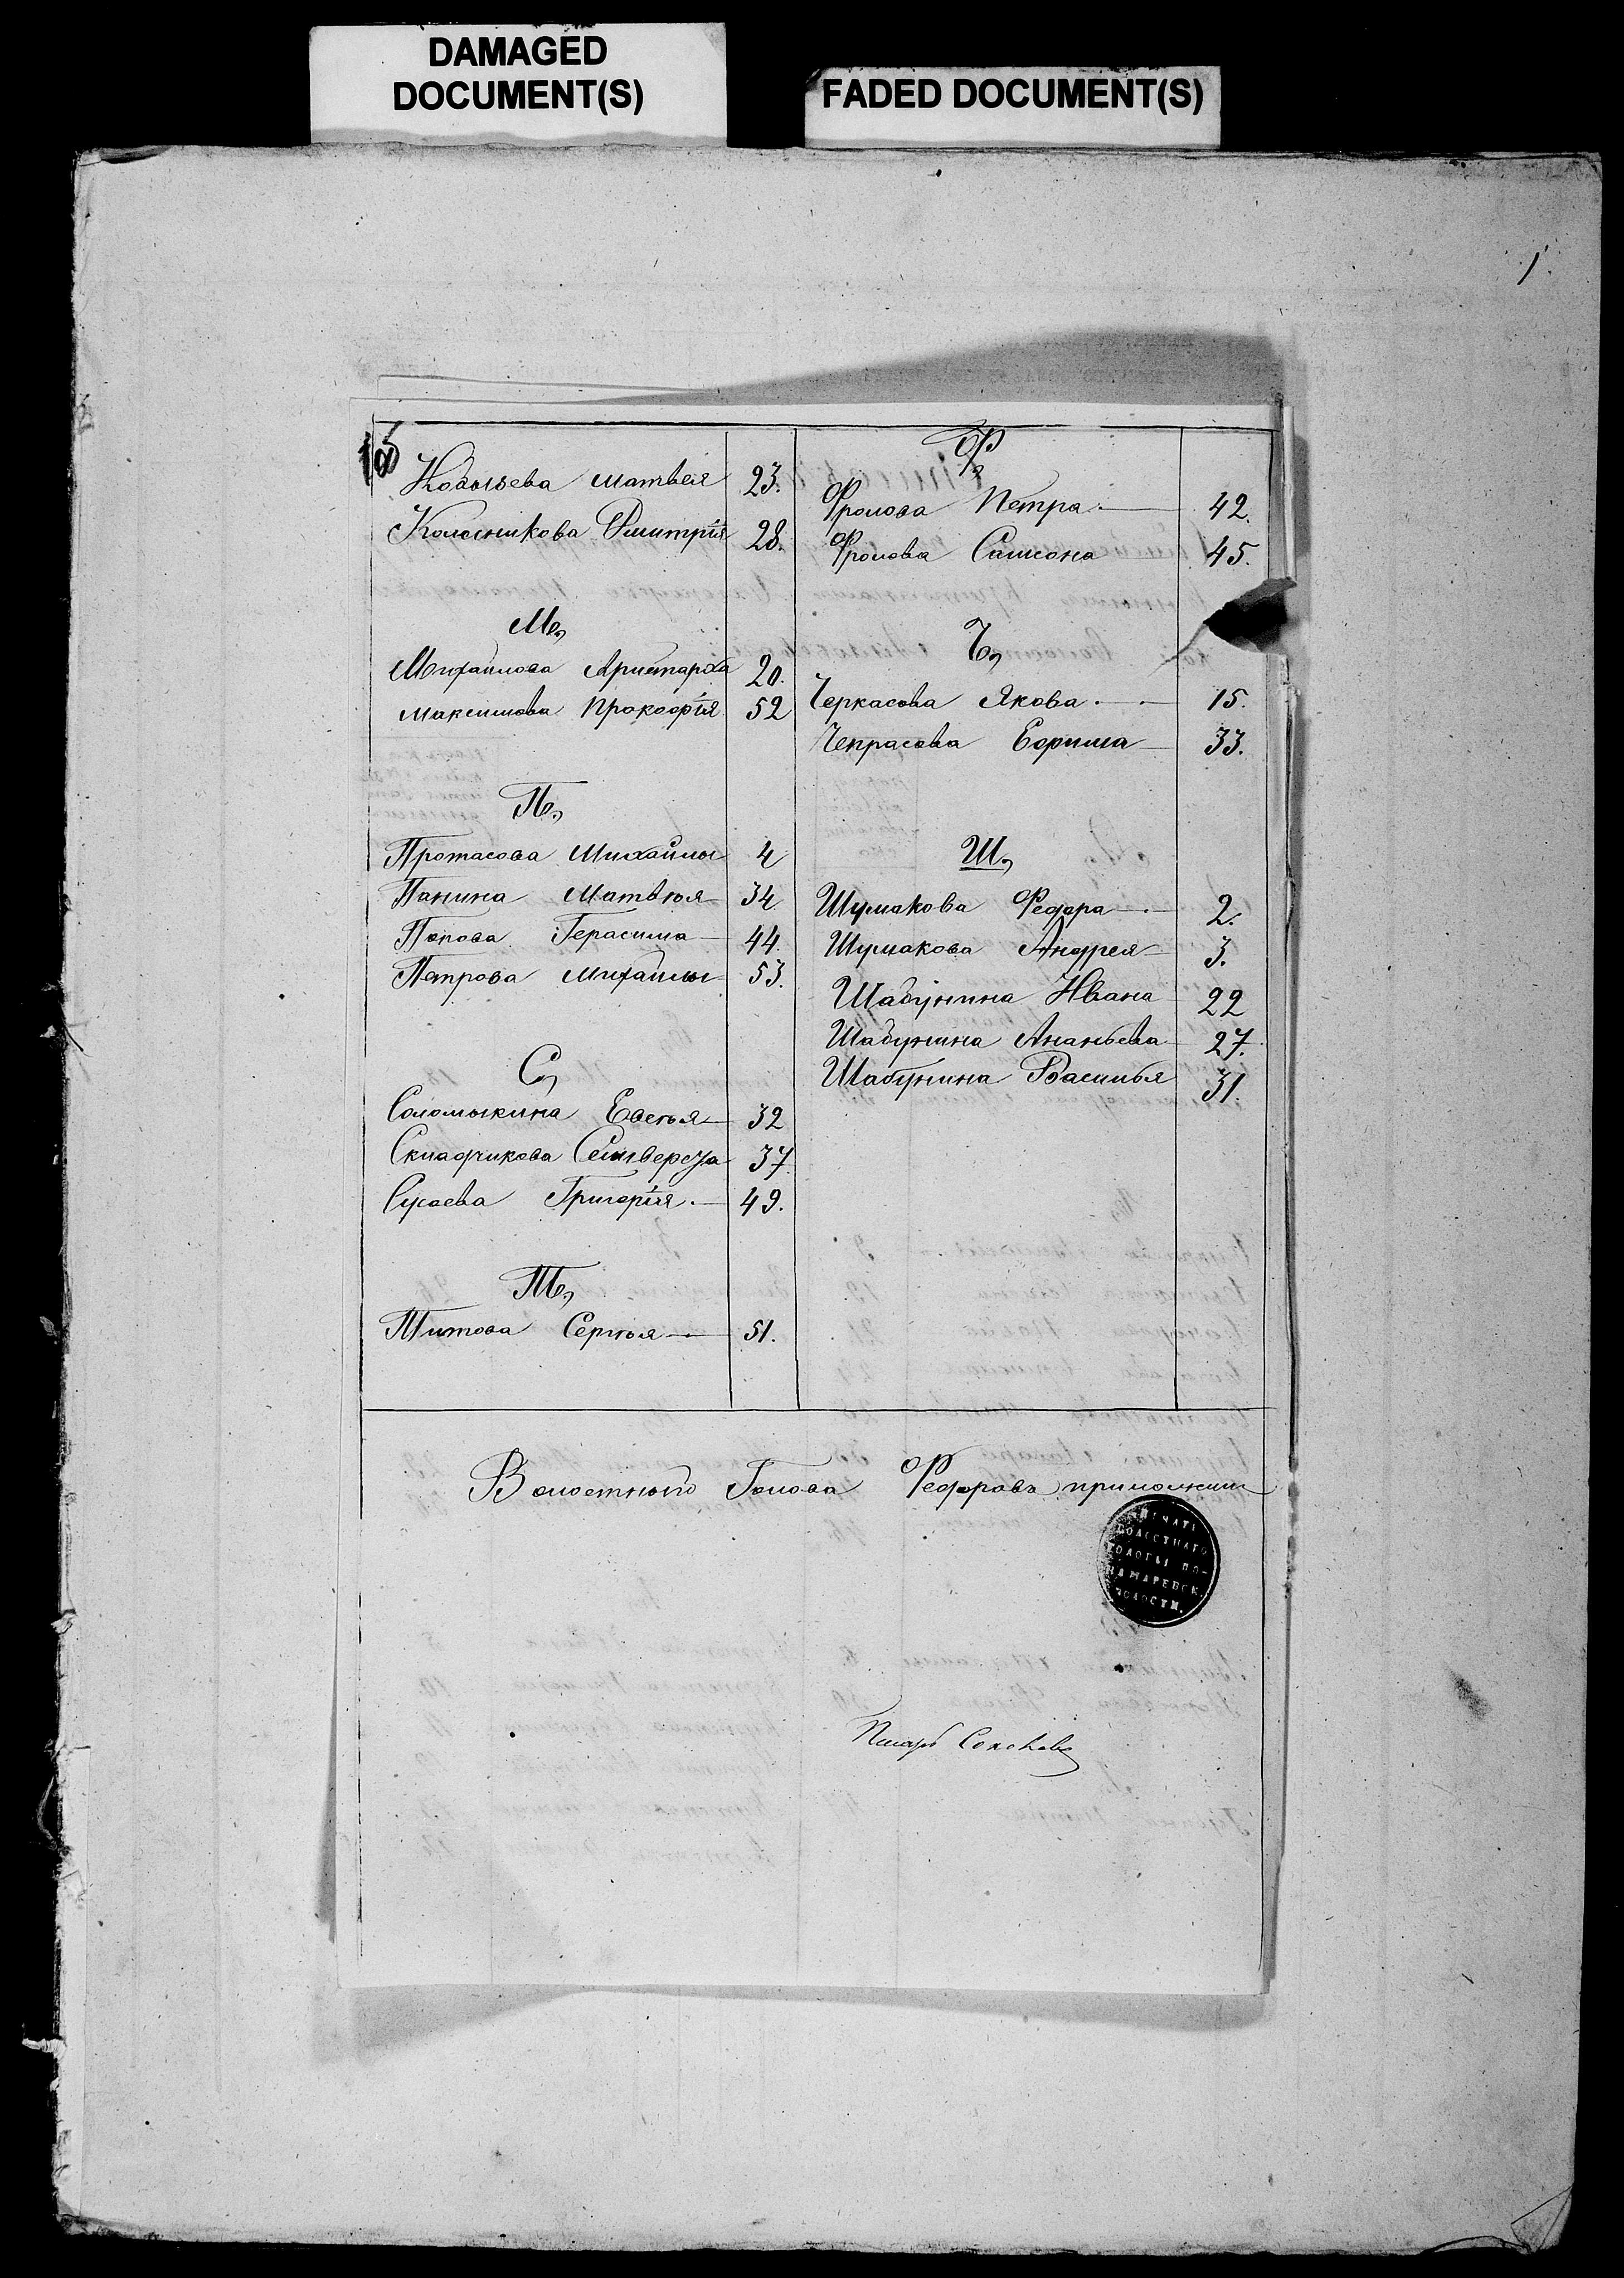 DAMAGED
DOCUMENT(S)
FADED DOCUMENT(S)
1.
Кобызева Матвея 23.
Колесникова Дмитрія 28.
М,
Михайлова Аристарха 20.
Максимова Прокофія 52
П,
Протасова Михайлы 4
Панина Матвѣя 34
Попова Герасима 44.
Петрова Михайлы 53.
С,
Соломыкина Евсѣя 32
Складчикова Селиверста 37
Сусаева Григорія 49.
Т,
Титова Сергѣя 51.
Ф,
Фролова Петра 42.
Фролова Самсона 45.
Ч,
Черкасова Якова 15.
Чекрасова Ефима 33.
Ш,
Шумакова Федора 2.
Шумакова Андрея 3.
Шабунина Ивана 22
Шабунина Ананьева 27.
Шабунина Василья 31.
Волостного Голова Федорова приложил
ПЕЧАТЬ
ВОЛОСТНАГО
ГОЛОВЫ ПО-
НАМАРЕВСК.
ВОЛОСТИ.
Писарь